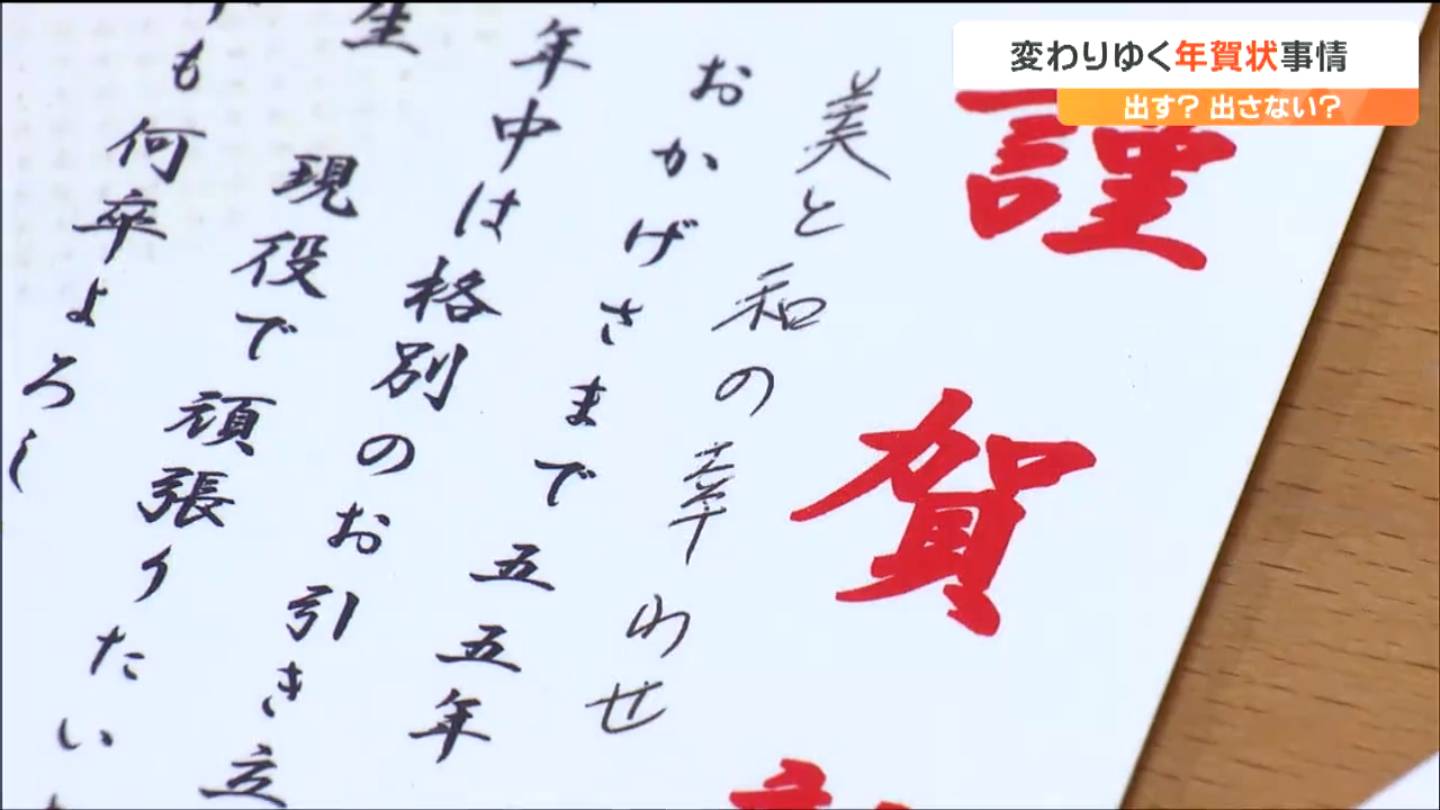 変わりゆく年賀状事情
出す? 出さない?
謹賀
美と和の幸わせ
おかげさまで五五年
年中は格別のお引き立
生
現役で頑張りたい
も何卒よろし